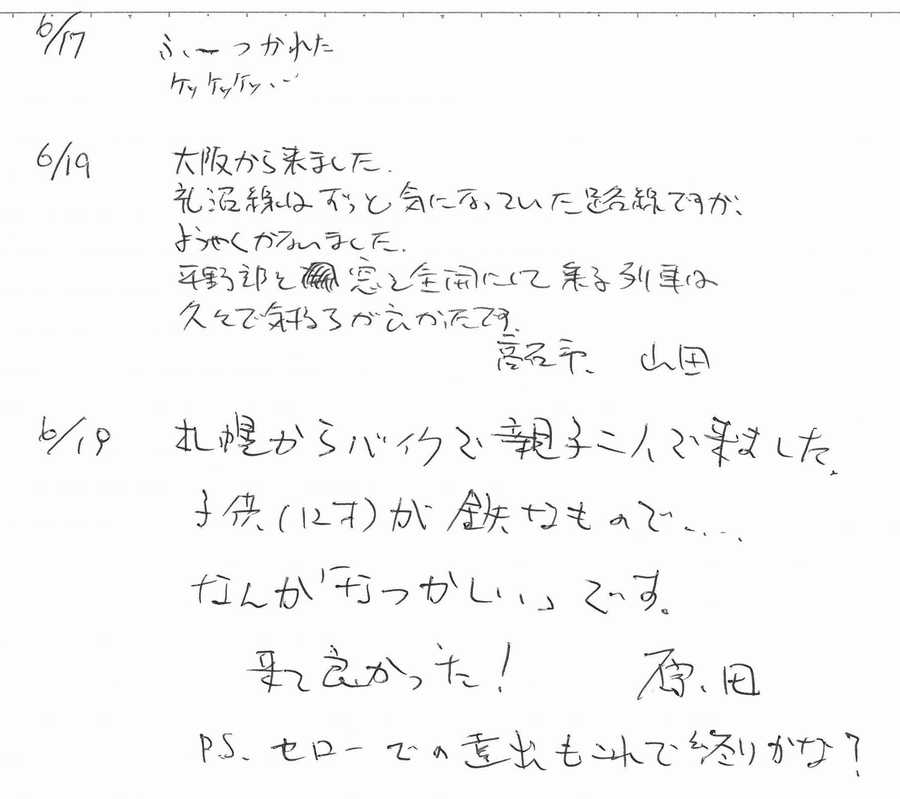 6/17 ふぃーつかれた
ケッケッケッ…
6/19 大阪から来ました.
札沼線はずっと気になっていた路線ですが、
ようやくかないました.
窓を全開にして乗る列車は
久々で気持ちが
高石市、山田
6/19 札幌からバイクで親子二人で来ました.
子供(12才)が鉄なもので....
なんか「なつかしい」です。
来て良かった! 原田
P.S. セローでの遠出もこれで終りかな?